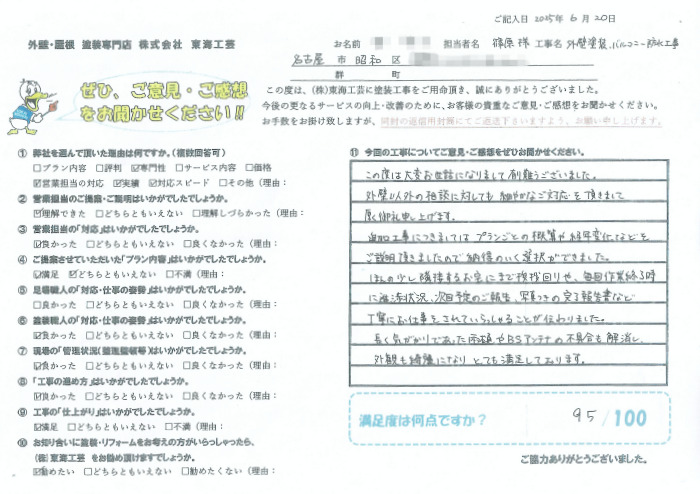 ご記入日 2025年 6月 20日
外壁・屋根 塗装専門店 株式会社 東海工芸
お名前 担当者名 篠原 様 工事名 外壁塗装、バルコニー防水工事
名古屋 市 昭和 区
群 町
ぜひ、ご意見・ご感想
をお聞かせください!!
この度は、(株)東海工芸に塗装工事をご用命頂き、誠にありがとうございました。
今後の更なるサービスの向上・改善のために、お客様の貴重なご意見・ご感想をお聞かせください。
お手数をお掛け致しますが、同封の返信用封筒にてご返送下さいますよう、お願い申し上げます。
① 弊社を選んで頂いた理由は何ですか。(複数回答可)
□プラン内容 □評判 ☑専門性 □サービス内容 □価格
☑営業担当の対応 ☑実績 ☑対応スピード □その他(理由:
② 営業担当のご提案・ご説明はいかがでしたでしょうか。
☑理解できた □どちらともいえない □理解しづらかった(理由:
③ 営業担当の「対応」はいかがでしたでしょうか。
☑良かった □どちらともいえない □良くなかった(理由:
④ ご提案させていただいた「プラン内容」はいかがでしたでしょうか。
☑満足 ☑どちらともいえない □不満(理由:
⑤ 足場職人の「対応・仕事の姿勢」はいかがでしたでしょうか。
□良かった □どちらともいえない □良くなかった(理由:
⑥ 塗装職人の「対応・仕事の姿勢」はいかがでしたでしょうか。
☑良かった □どちらともいえない □良くなかった(理由:
⑦ 現場の「管理状況(整理整頓等)」はいかがでしたでしょうか。
☑良かった □どちらともいえない □良くなかった(理由:
⑧ 「工事の進め方」はいかがでしたでしょうか。
☑良かった □どちらともいえない □良くなかった(理由:
⑨ 工事の「仕上がり」はいかがでしたでしょうか。
☑満足 □どちらともいえない □不満(理由:
⑩ お知り合いに塗装・リフォームをお考えの方がいらっしゃったら、
(株)東海工芸 をお勧め頂けますでしょうか。
☑勧めたい □どちらともいえない □勧めたくない(理由:
⑪ 今回の工事についてご意見・ご感想をぜひお聞かせください。
この度は大変お世話になりまして有難うございました。
外壁以外の相談に対しても細やかなご対応を頂きまして
厚く御礼申し上げます。
工事につきましてはプランごとの概算や経年変化などを
ご説明頂きましたので納得のいく選択ができました。
ほんの少し隣接するお宅にまで挨拶回りや、毎回作業終了時
に進渉状況、次回予定のご報告、写真つきの完了報告書など
丁寧にお仕事をされていらっしゃることが伝わりました。
長く気がかりであった雨樋やBSアンテナの不具合も解消し、
外観も綺麗になりとても満足しております。
満足度は何点ですか? 95/100
ご協力ありがとうございました。